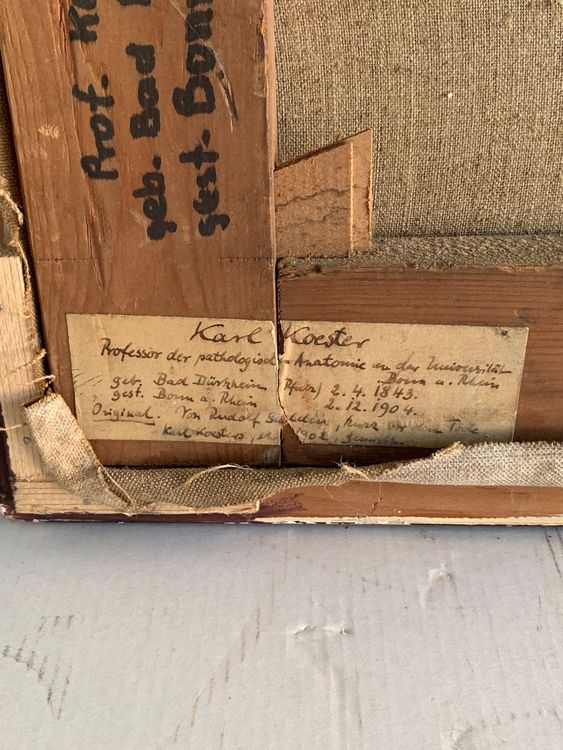 Prof. K
geb. Bad
gest. Bonn
Karl Koester
Professor der pathologischen Anatomie an der Universität
Bonn a. Rhein
geb. Bad Dürkheim Pfalz) 2.4.1843.
gest. Bonn a. Rhein 2.12.1904.
Original. Von Rudolf kurz vor dem Tode
Karl Koesters, 1902,